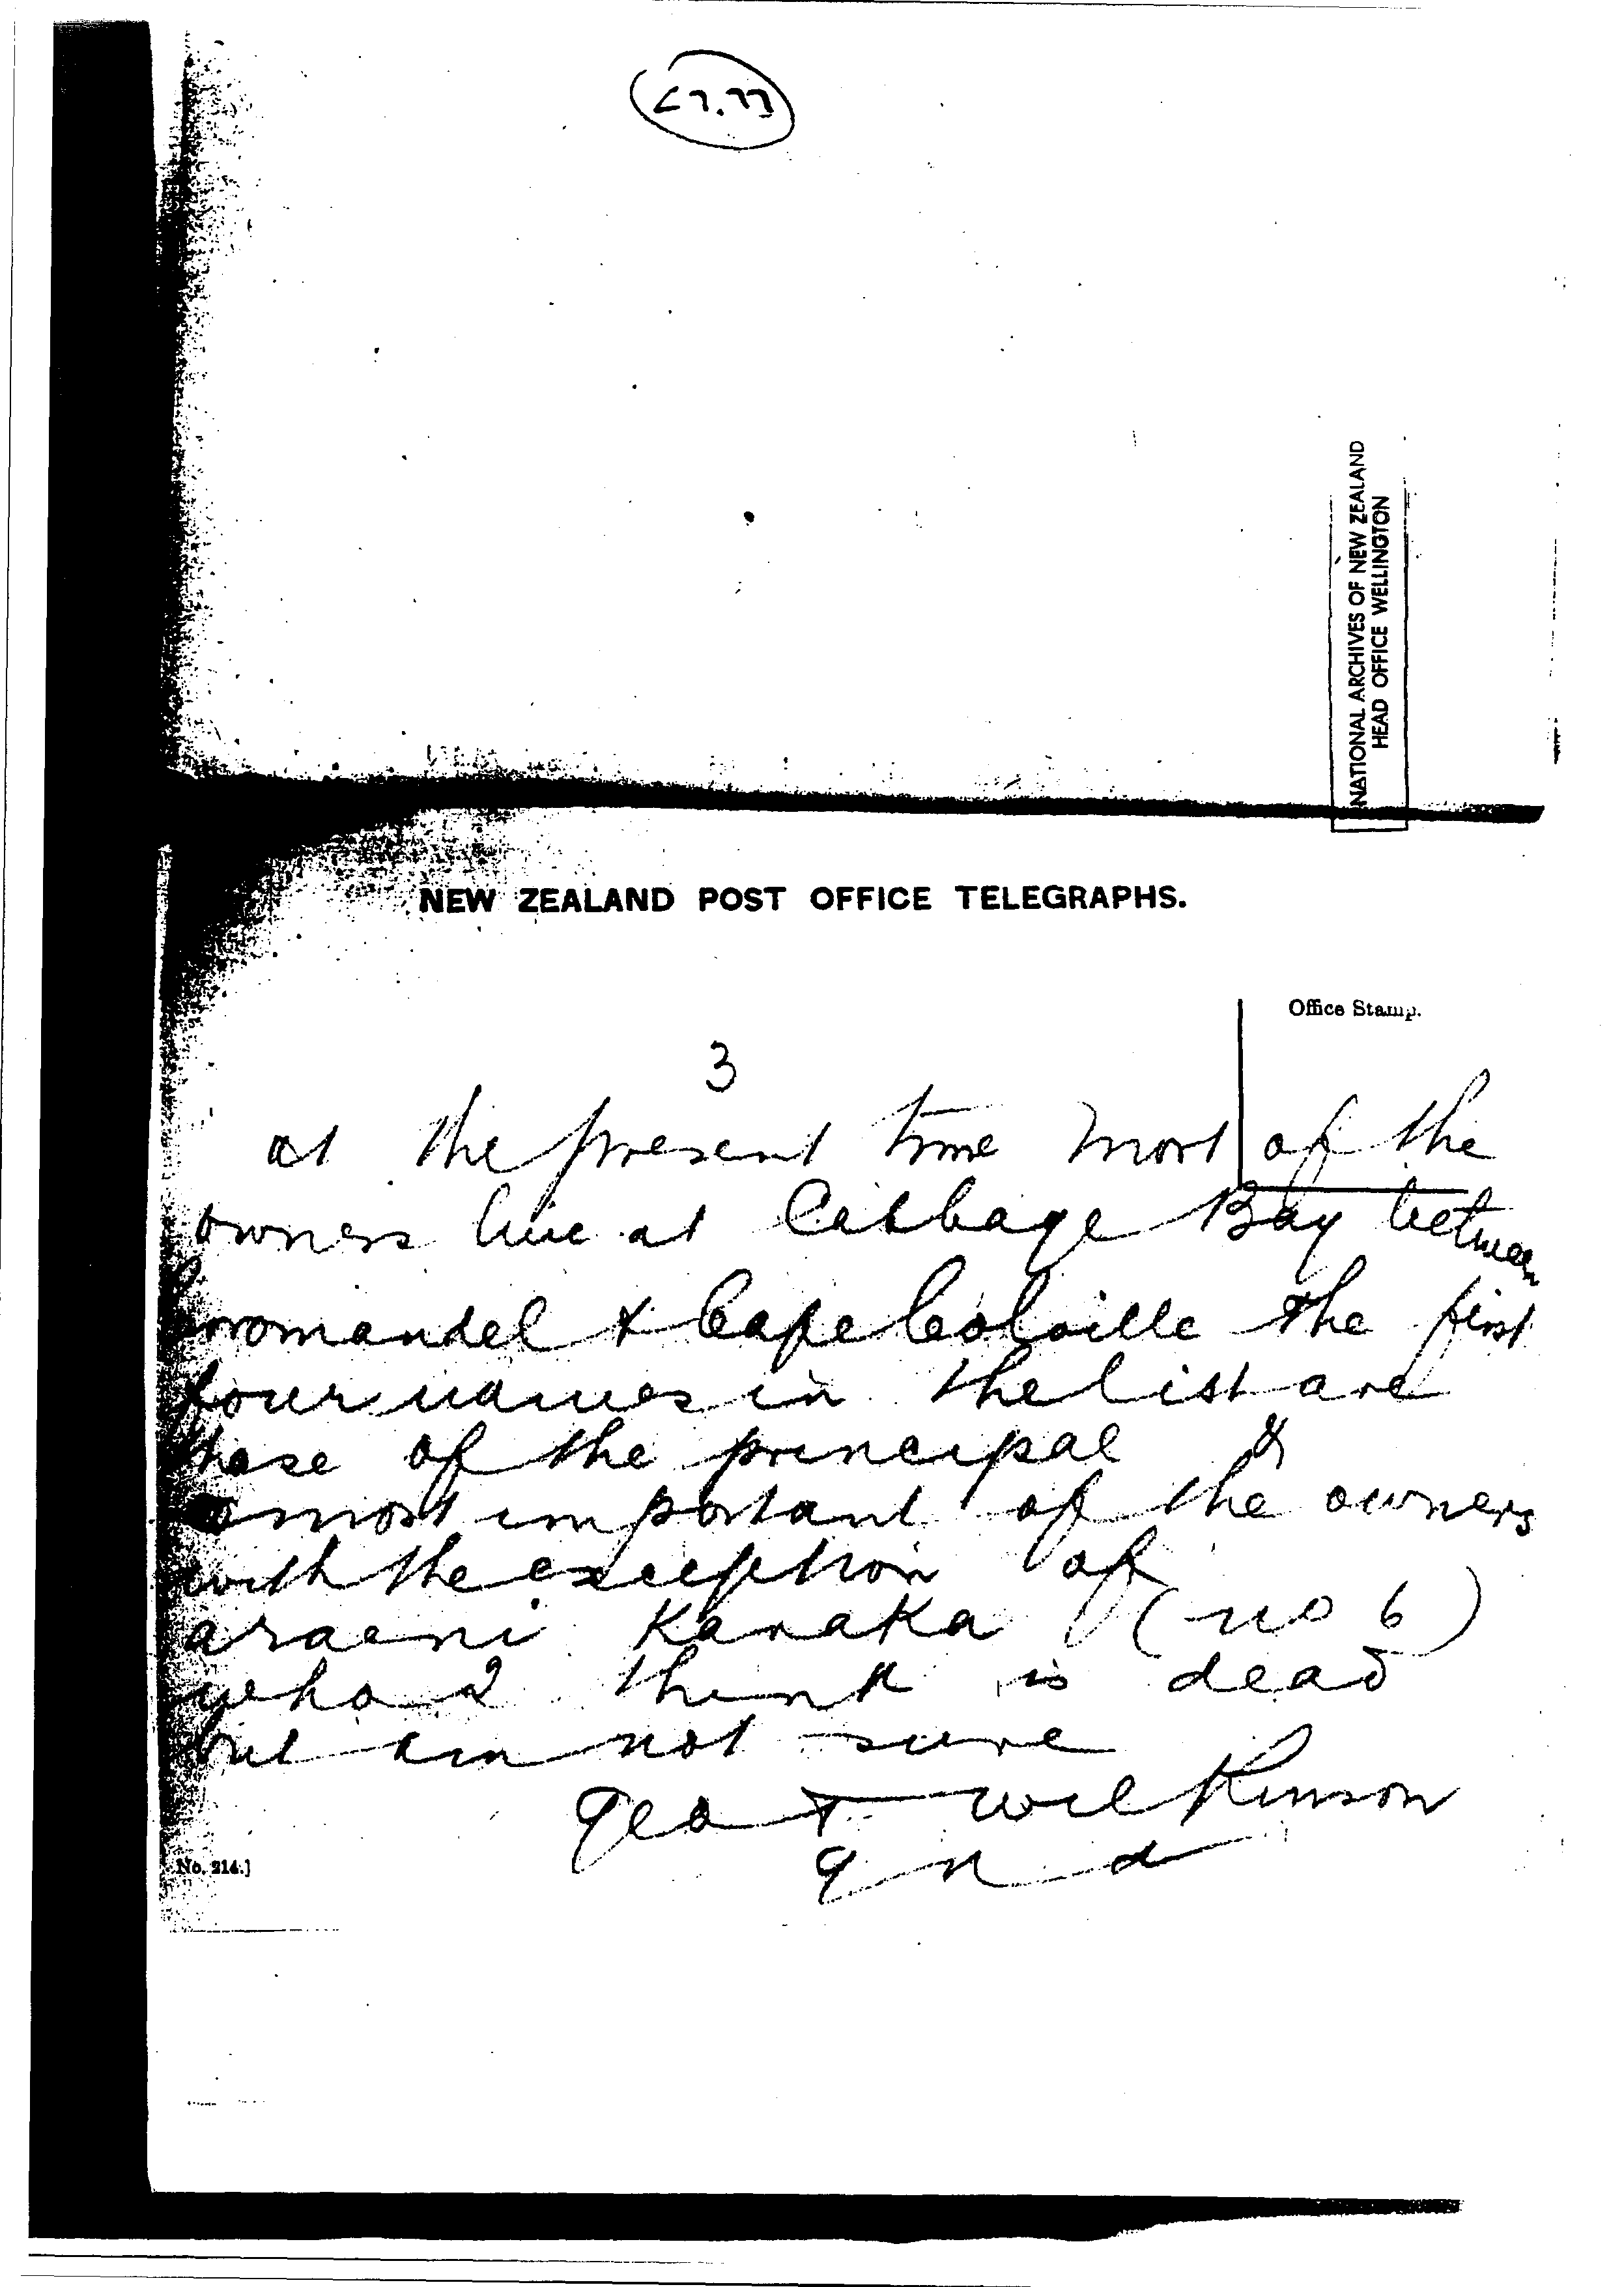 NATIONAL ARCHIVES OF NEW ZEALAND
HEAD OFFICE WELLINGTON
NEW ZEALAND POST OFFICE TELEGRAPHS.
Office Stamp.
3
at the present time most of the
owners live at Cabbage Bay between
Coromandel & Cape Colville the first
four names in the list are
those of the principal &
most important of the owners
with the exception of
araeni Karaka (no 6)
who I think is dead
but am not sure
Geo T Wilkinson
No. 214.]